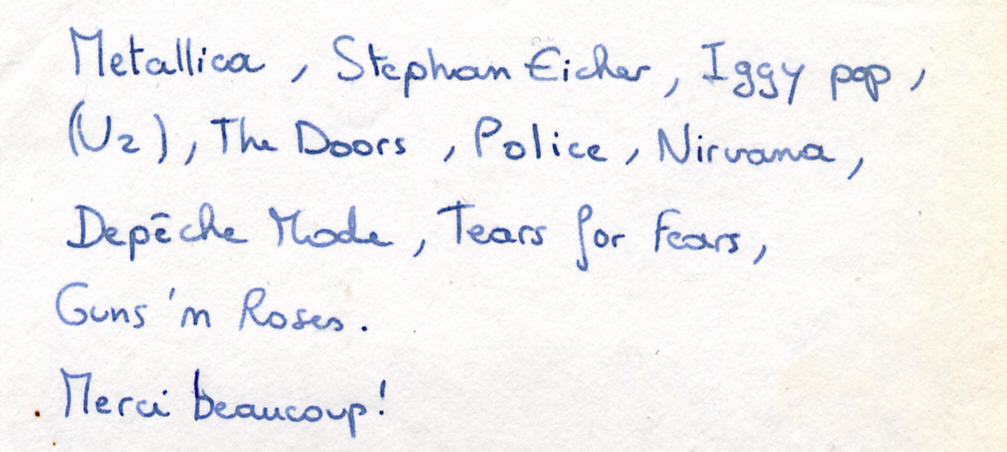 Metallica, Stephan Eicher, Iggy pop,
(U2), The Doors, Police, Nirvana,
Depêche Mode, Tears for Fears,
Guns 'n Roses.
Merci beaucoup!